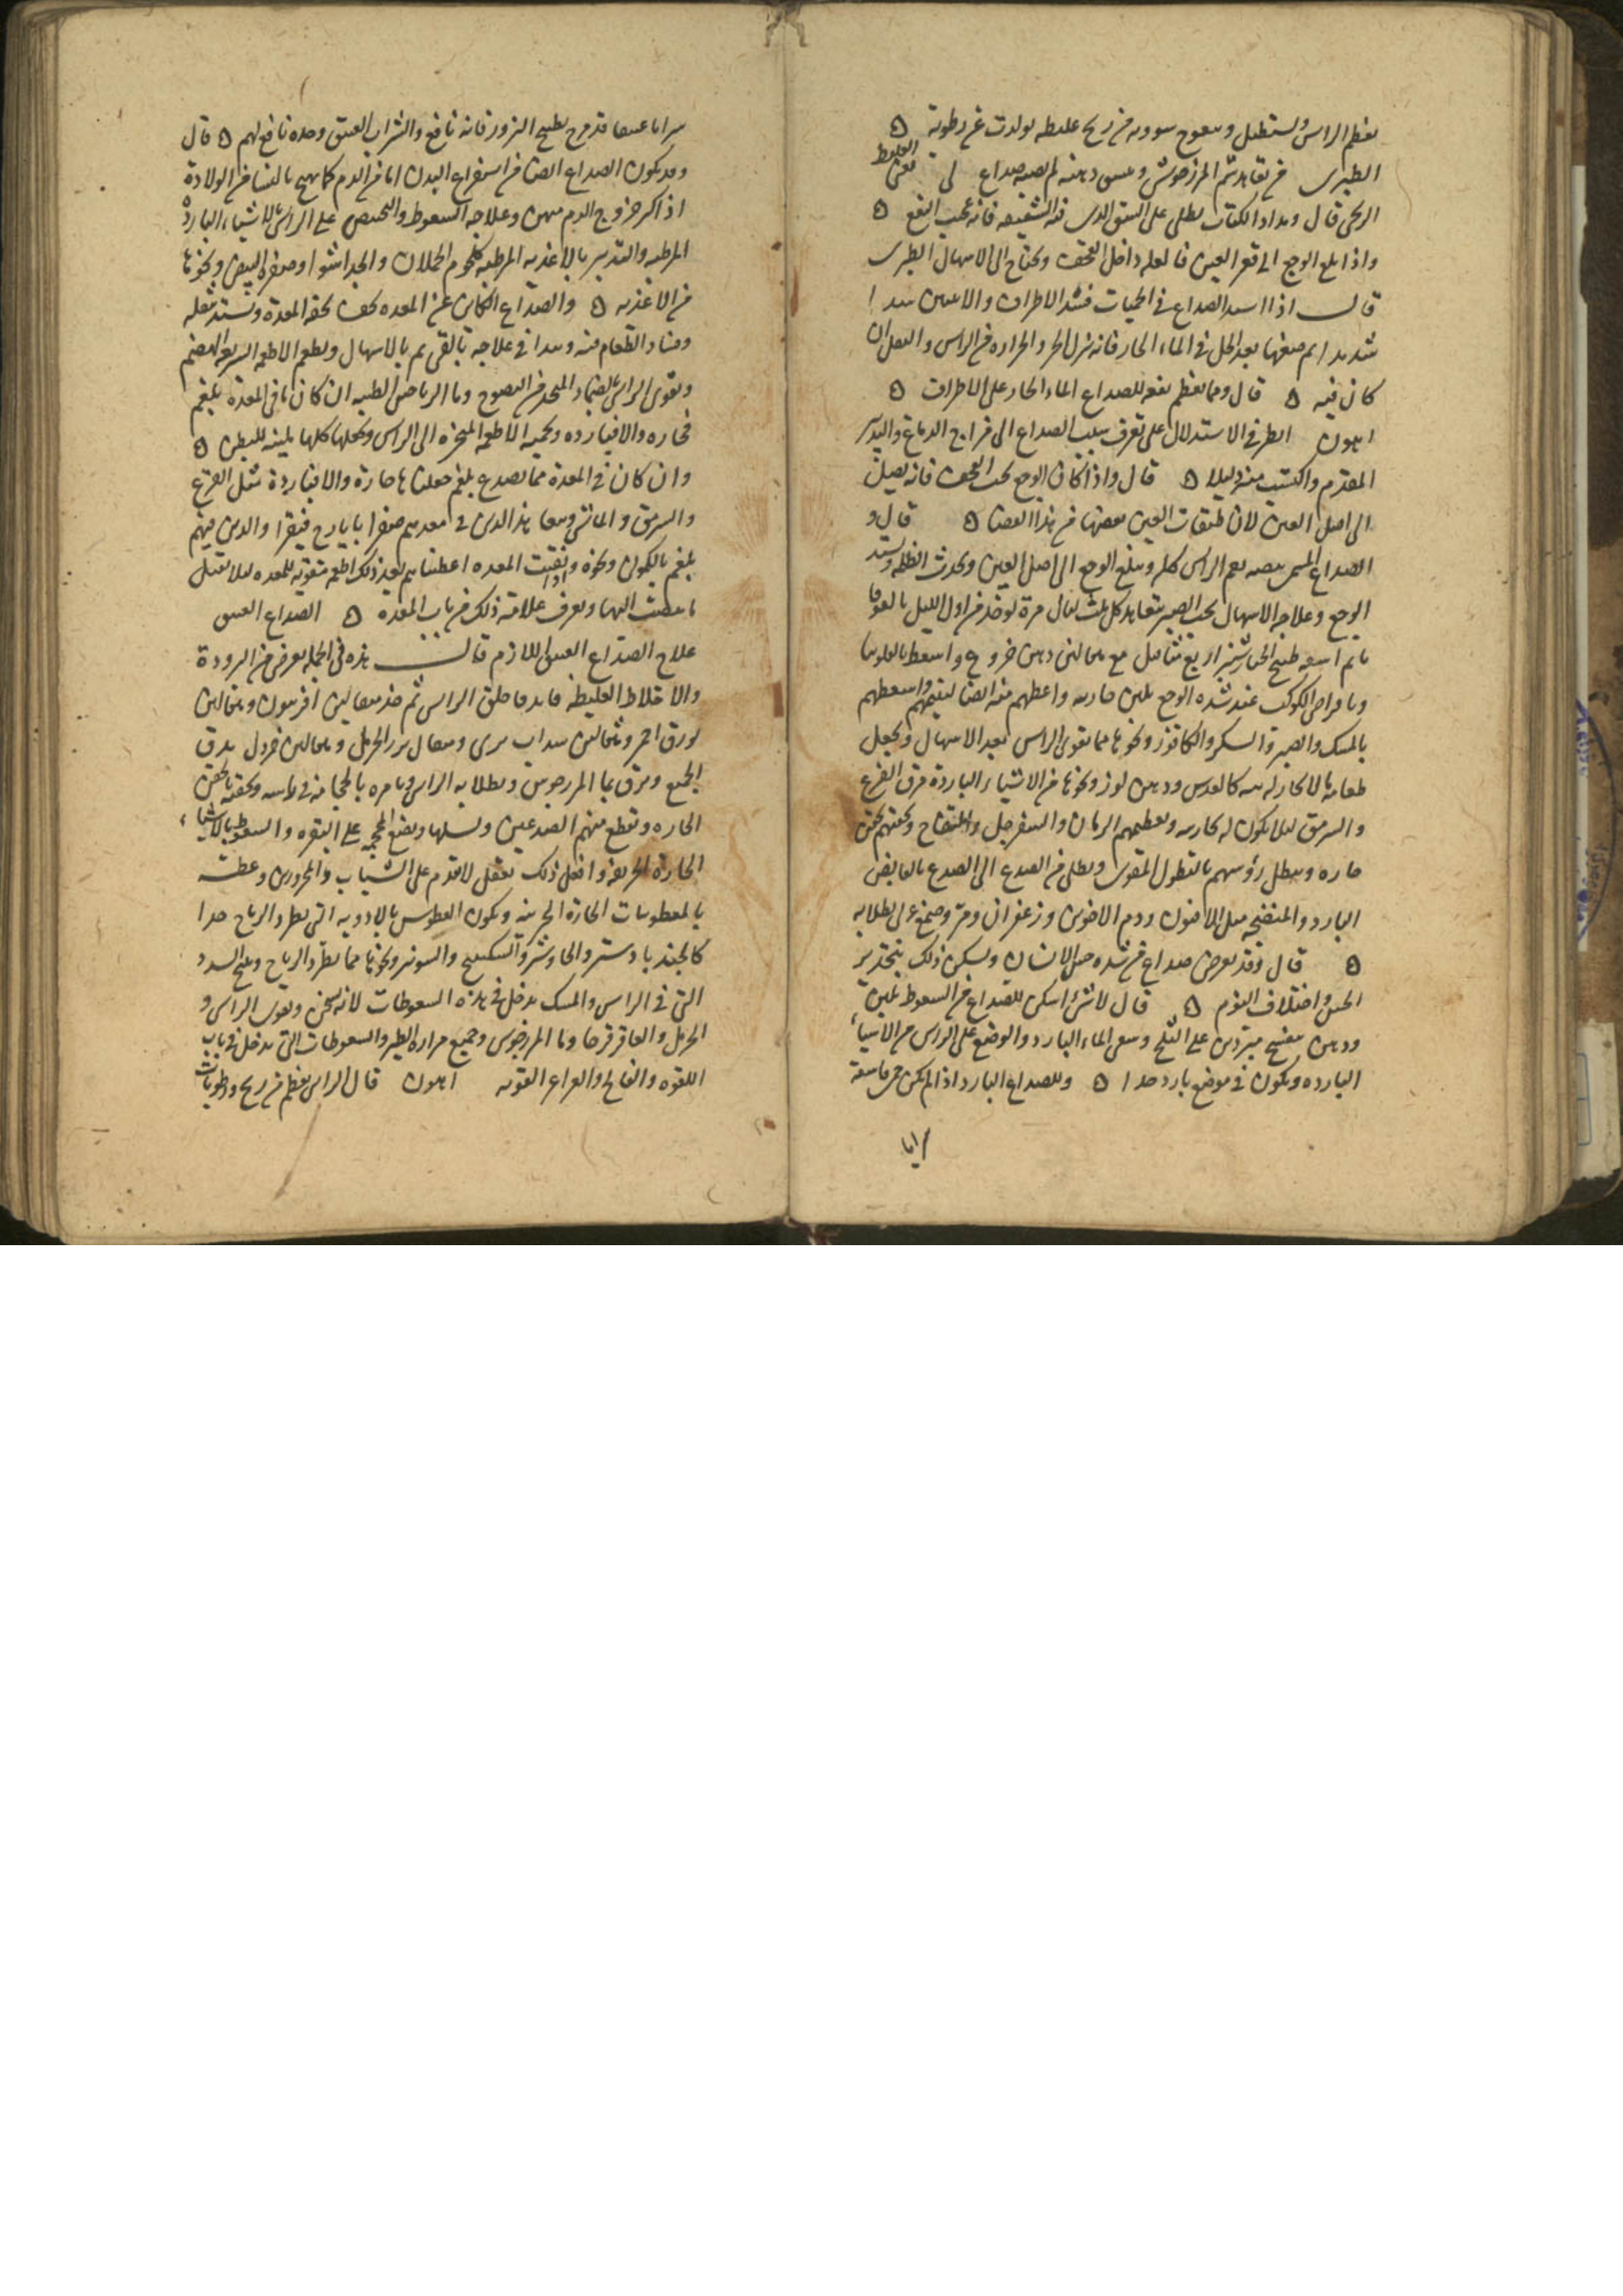 يعظم الراس ويستطيل ويعوج من ريح غليظه تولدت عن رطوبة ه
الطبرى من تعاهد شم المرزنجوش دهنه لم يصبه صداع لى يعنى الغليظ
الريحى قال ومداد الكتاب يطلى على الشق الذى فيه الشقيقه فانه عجيب النفع ه
واذا بلغ الوجع الى قعر العين فالعله داخل القحف ويحتاج الى الاسهال الطبرى
قال اذا اشتد الصداع فى الحميات فشد الاطراف والانثيين شدا
شديدا ثم ضعها بعد الحل فى الماء الحار فانه ينزل الحر والحراره من الراس والثقل ان
كان فيه ه قال ومما يعظم نفعه للصداع الماء الحار على الاطراف ه
اهرون انظر فى الاستدلال على تعرف سبب الصداع الى مزاج الدماغ والتدبير
المقدم واكتسب منه دليلا ه قال واذا كان الوجع تحت القحف فانه يصل
الى اصل العين لان طبقات العين بعضها من هذا ايضا ه قال و
الصداع المسمى بيضه يعم الراس كله ويبلغ الوجع الى اصل العين ويحدث الظلمه ويشتد
الوجع وعلاجه الاسهال بحب الصبر يتعاهد كل ثلث ليال مرة يوخذ من اول الليل بالغوفايا
ثم اسقه طبيخ الخيارشنبر اربع مثاقيل مع مثقالين دهن خروع واسعط
وباقراص الكوكب عند شده الوجع بلبن جاريه واعطهم منه ايضا لينيمهم واسعطهم
بالمسك والصبر والسكر والكافور ونحوها مما يقوى الراس بعد الاسهال وتجعل
طعامه ما لا بخار له كالعدس ودهن لوز ونحوها من الاشياء الباردة مرق القرع
والسرمق لئلا يكون له بخاريه وتعطيهم الرمان والسفرجل والتفاح وتحقنهم بحقن
حاره وتنطل رؤسهم بالنطول المقوى ويطلى من الصدغ الى الصدغ بالقابض
البارد والمنضجه مثل الافيون ودم الاخوين وزعفران ومر وصمغ عربى يطلا به
ه قال وقد يعرض صداع من شده حس الانسان ويسكن ذلك بتخدير
الحس واختلاف النوم ه قال لا شئ اسكن للصداع من السعوط بلبن
ودهن بنفسج مبردين على الثلج وسقى الماء البارد والوضع على الراس من الاشياء
البارده ويكون فى موضع بارد جدا ه وللصداع البارد اذا لم يكن حمى فاسقه
شرابا
شرابا عتيقا قد مزج بطبيخ البزور فانه نافع والشراب العتيق وحده نافع لهم ه قال
وقد يكون الصداع ايضا من استفراغ البدن اما من الدم كما يهيج بالنسا من الولادة
اذا كثر خروج الدم منهن وعلاجه السعوط والتحنيص على الراس بالاشياء البارده
المرطبه والتدبير بالاغذيه المرطبه كلحوم الحملان والجدا شوا وصفره البيض ونحوها
من الاغذيه ه والصداع الكائن عن المعده يخف بخفه المعدة ويشتد بثقله
وفساد الطعام فيه ويبدا فى علاجه بالقى ثم بالاسهال ويطعم الاطعمه السريعه الهضم
ويقوى الراس بالضماد المتخذ من النضوح وما الرياحين الطيبه ان كان ما فى المعدة بلغم
فحاره والا فبارده ويحميه الاطعمه المبخره الى الراس وتجعلها كلها ملينه للبطن ه
وان كان فى المعدة مما يصدع بلغم جعلناها حارة والا فباردة مثل القرع
والسرمق والماش وسقينا هذا الذين فى معدتهم صفرا بايارج فيقرا والذين فيهم
بلغم بالكمون ونحوه واذا نقيت المعده اعطيناهم بعد ذلك اطعمه مقويه للمعده لئلا تقبل
ما ينصب اليها ويعرف علامة ذلك من باب المعده ه الصداع العتيق
علاج الصداع العتيق اللازم قال هذه فى الجمله يعرض من البرودة
والاخلاط الغليظه فابدا حلق الراس ثم خذ مثقالين افربيون ومثقالين
بورق احمر ومثقالين سداب برى ومثقال بزر الحرمل ومثقالين خردل يدق
الجميع ويرق بما المرزنجوش ويطلا به الراس وتامره بالحجامه فى راسه وتحقنه بالحقن
الحاره وتقطع منهم الصدغين ويسلها ويضع المحجمه على النقره والسعوط بالاشيا
الحارة الحريفه وافعل ذلك بعقل لا تقدم على الشباب والمحرورين وعطسه
بالمعطوسات الحارة الحريفه ويكون العطوس بالادويه التى تطرد الرياح جدا
كالجندبادستر والجاوشير والسكبينج والشونيز ونحوها مما يطرد الرياح ويفتح السدد
التى فى الراس والمسك يدخل فى هذه السعوطات لانه يسخن ويقوى الراس و
الحرمل والعاقرقرحا وما المرزنجوش وجميع مراره الطير والسعوطات التى تدخل فى باب
اللقوه والفالج والصداع القويه اهرون قال الراس يعظم من ريح ورطوبات